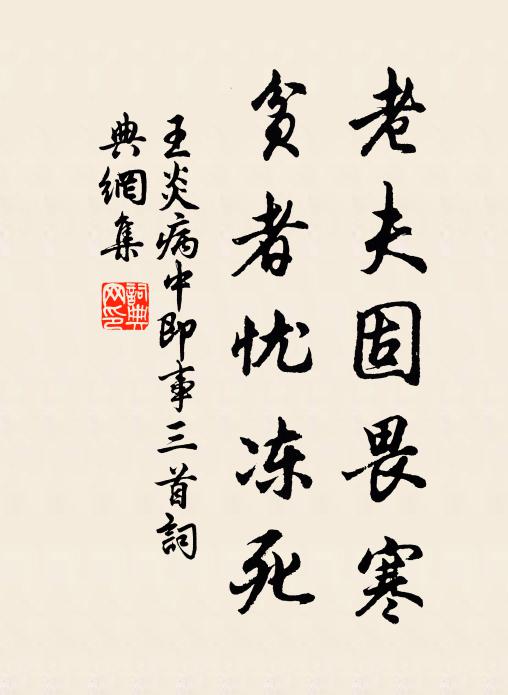 老夫固畏寒
贫者忧冻死
王炎病中即事三首詞
典網集
詞典
网印